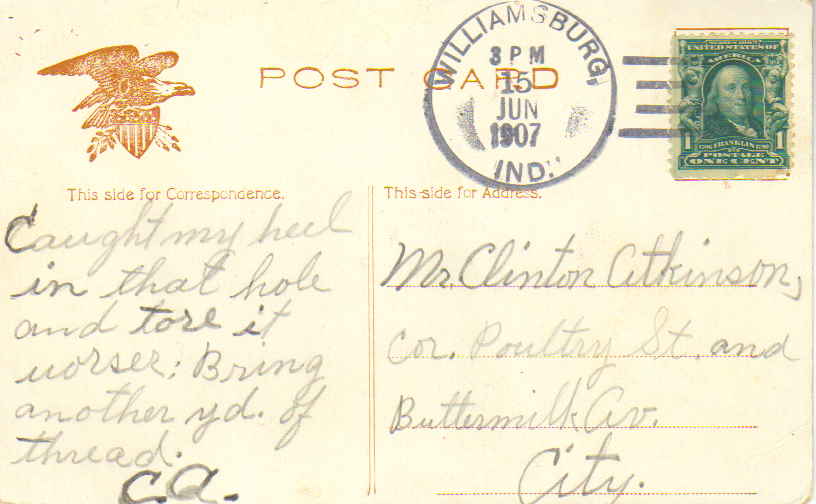 POST CARD
WILLIAMSBURG,
3 PM
15
JUN
1907
IND.
UNITED STATES OF
AMERICA
1 FRANKLIN 1
POSTAGE
ONE CENT
This side for Correspondence.
Caught my heel
in that hole
and tore it
worser: Bring
another yd. of
thread.
C.A.
This side for Address.
Mr. Clinton Atkinson,
Cor. Poultry St. and
Buttermilk Av.
City.